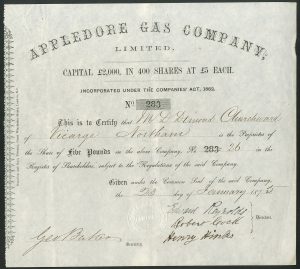 APPLEDORE GAS COMPANY,
LIMITED.
CAPITAL £2,000, IN 400 SHARES AT £5 EACH.
INCORPORATED UNDER THE COMPANIES' ACT, 1862.
No 283
This is to Certify that Mr L Desmond Churchward
of Vicarage Northam is the Proprietor
of the Share of Five Pounds in the above Company, No 283
Register of Shareholders, subject to the Regulations of the said Company.
Given under the Common Seal of the said Company,
the 2nd day of January 1875
Edward Reynolds
Robert Cock
Henry Hinks
Directors.
Geo Butson
Secretary.